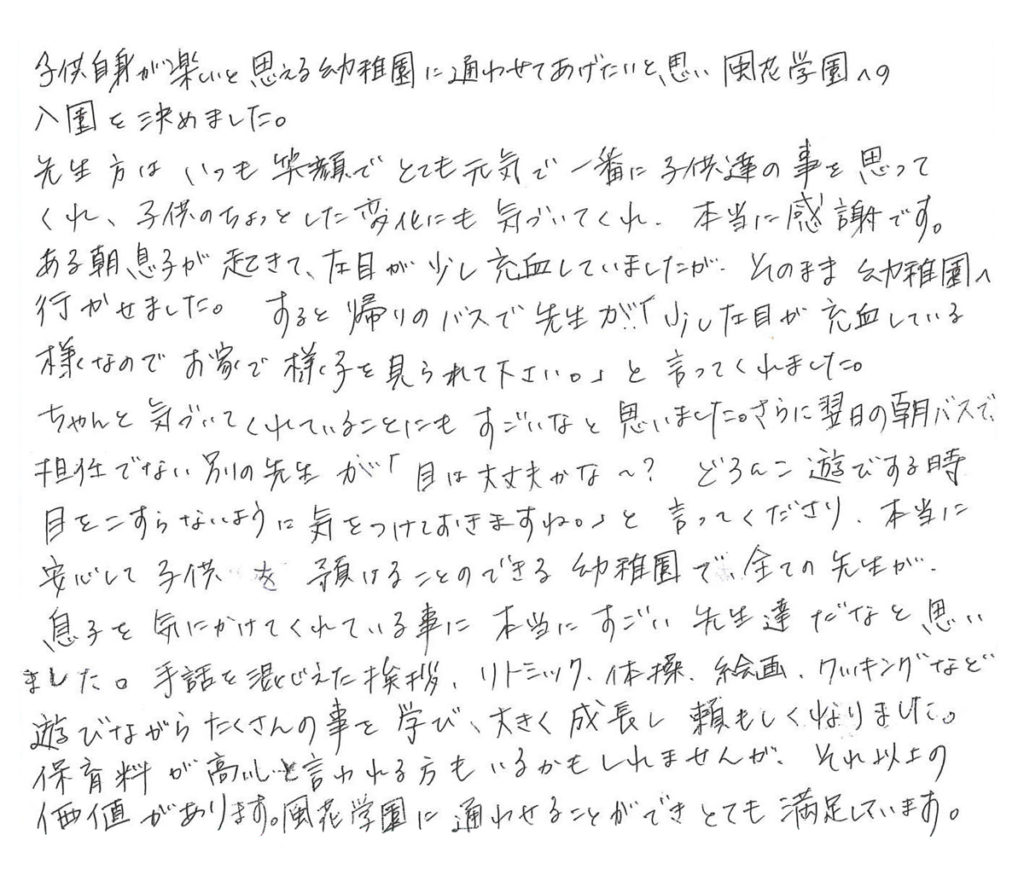 子供自身が楽しいと思える幼稚園に通わせてあげたいと思い風花学園への
入園を決めました。
先生方はいつも笑顔でとても元気で一番に子供達の事を思って
くれ、子供のちょっとした変化にも気づいてくれ、本当に感謝です。
ある朝息子が起きて、左目が少し充血していましたが、そのまま幼稚園へ
行かせました。すると帰りのバスで先生が「少し左目が充血している
様なのでお家で様子を見られて下さい。」と言ってくれました。
ちゃんと気づいてくれていることにもすごいなと思いました。さらに翌日の朝バスで、
担任でない別の先生が「目は大丈夫かな～？どろんこ遊びする時
目をこすらないように気をつけておきますね。」と言ってくださり、本当に
安心して子供を預けることのできる幼稚園で、全ての先生が、
息子を気にかけてくれている事に本当にすごい先生達だなと思い
ました。手話を混じえた挨拶、リトミック、体操、絵画、クッキングなど
遊びながらたくさんの事を学び、大きく成長し頼もしくなりました。
保育料が高いと言われる方もいるかもしれませんが、それ以上の
価値があります。風花学園に通わせることができとても満足しています。